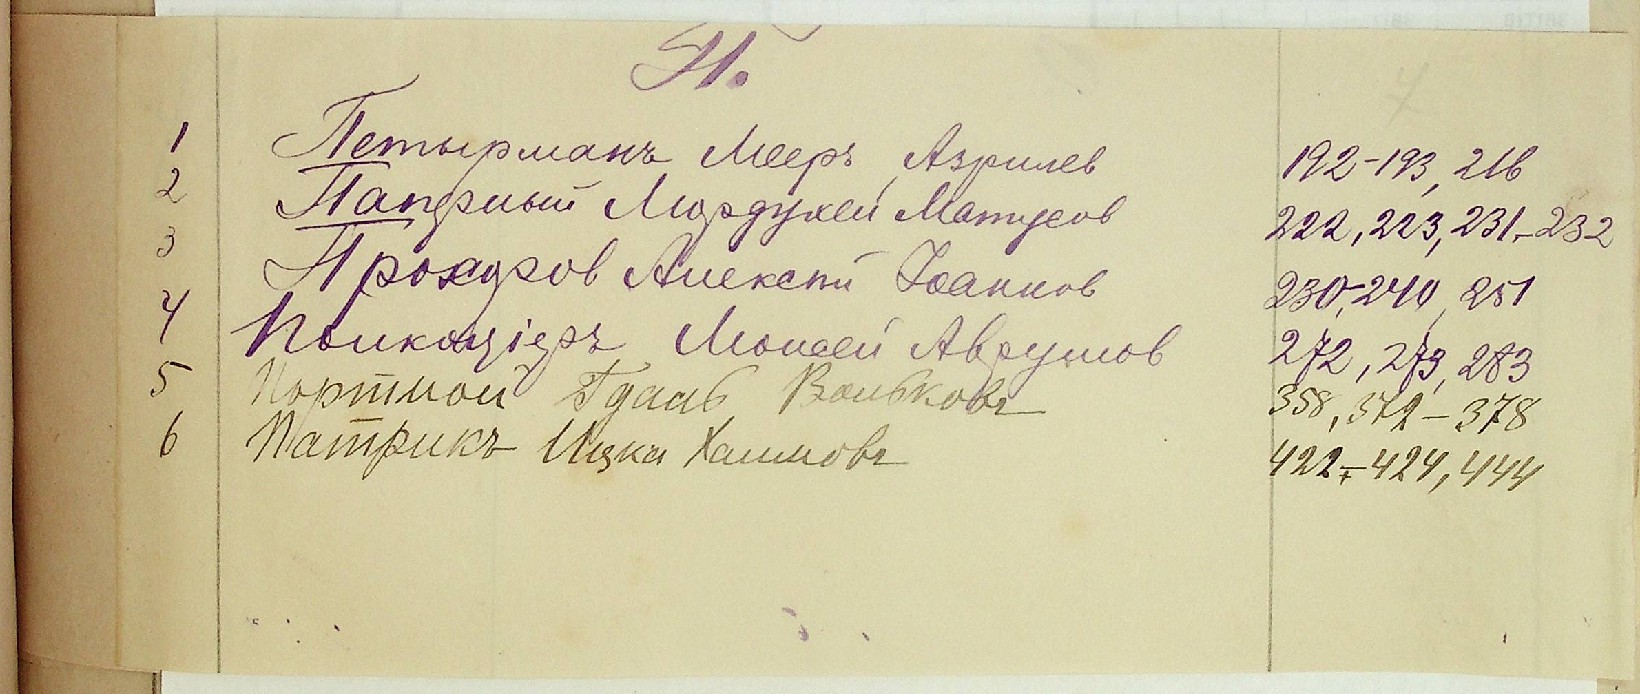 П.
1 Петырманъ Мееръ Азрилев 192-193, 216
2 Паперный Мордухей Матусов 222, 223, 231-232
3 Прохоров Алексей Иоаннов 230, 240, 251
4 Моисей Аврумов 272, 273, 283
5 Портной Гдаль Вольковъ 358, 372-378
6 Патрикъ Ицка Хаимовъ 422-424, 444